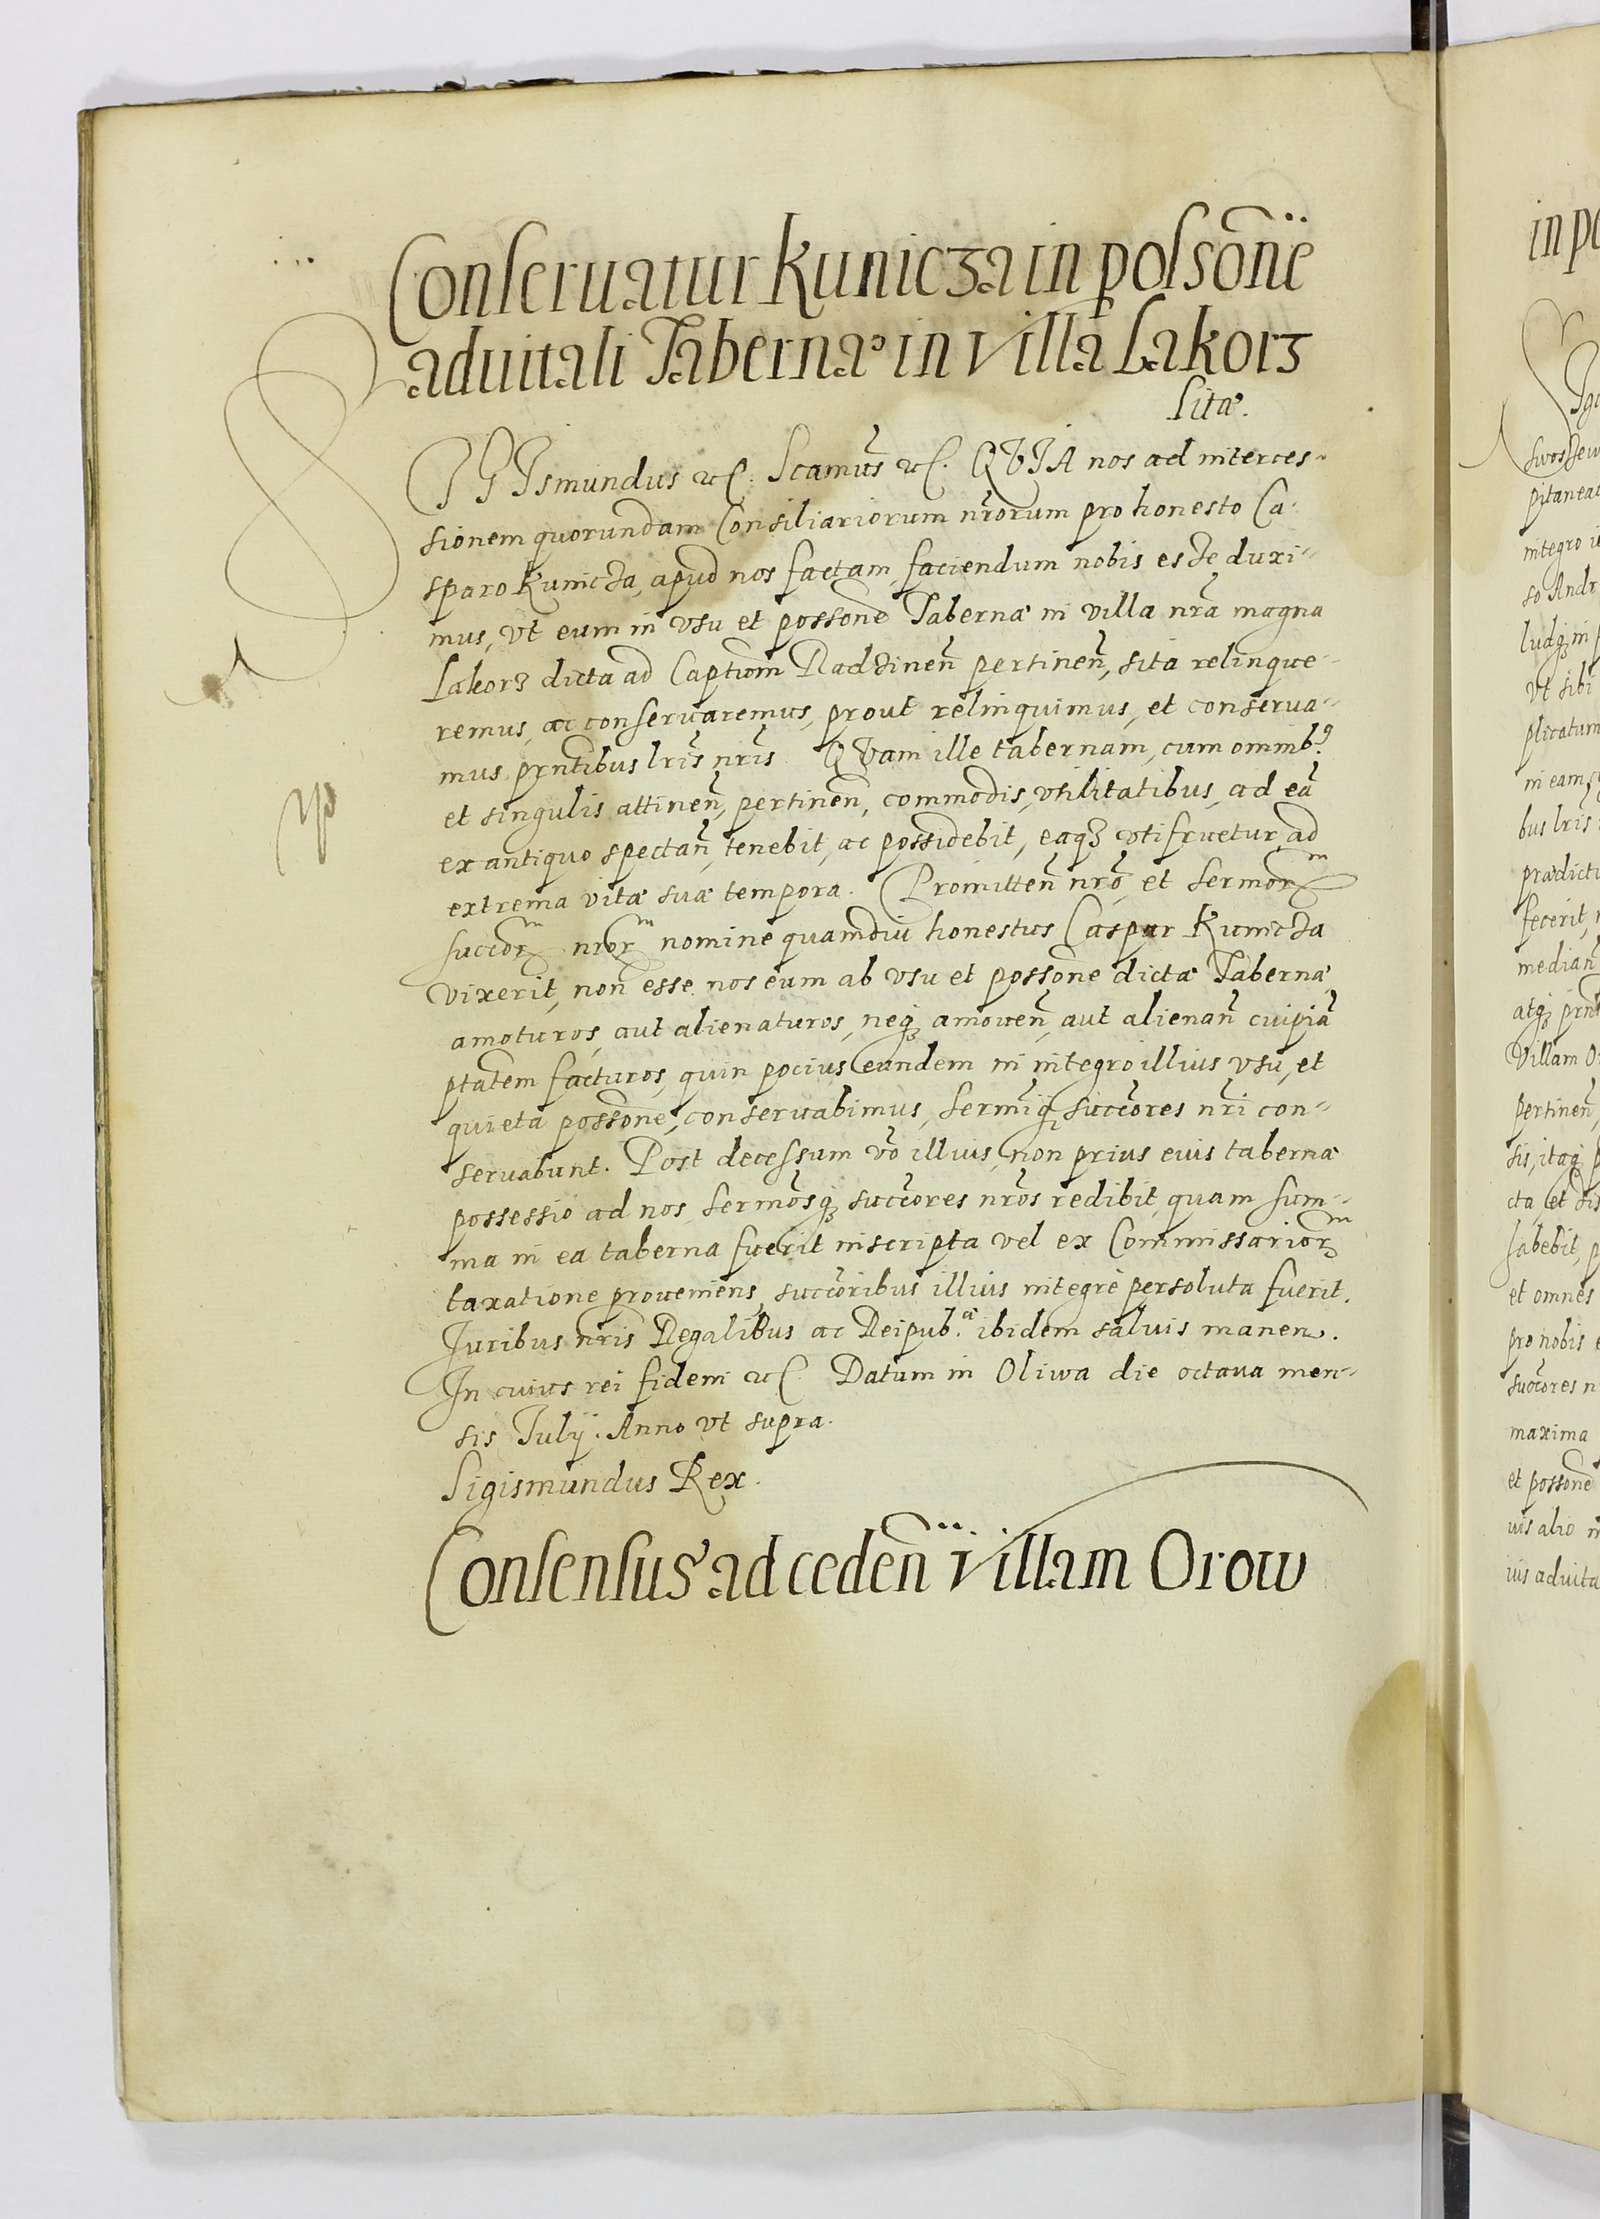 Conseruatur Kunicza in possonē
aduitali Tabernæ in villa Lakorz
sitæ.
SIGIsmundus etc. Scamus etc. QVIA nos ad interces-
sionem quorundam Consiliariorum nrōrum pro honesto Ca-
sparo Kunicza, apud nos factam, faciendum nobis esse duxi-
mus, vt eum in vsu et possone Tabernæ in villa nrā magna
Lakorz dicta ad Captum Radzinen̄ pertinen̄, sita relinque-
remus, ac conseruaremus, prout relinquimus, et conserua-
mus prntibus lris nris. QVam ille tabernam, cum omnib.⁹
et singulis attinen̄, pertinen̄, commodis, vtilitatibus, ad eā
ex antiquo spectan̄, tenebit, ac possidebit, eaqꝫ vtifruetur, ad
extrema vitæ suæ tempora. Promitten̄ nrō, et Sermorᵐ
succorᵐ nrorᵐ nomine quamdiu honestus Caspar Kunicza
vixerit, non esse nos eum ab vsu et possone dictæ Tabernæ
amoturos, aut alienaturos, neqꝫ amouen̄, aut alienan̄ cuipiā
ptatem facturos, quin pocius eundem in integro illius vsu, et
quieta possone, conseruabimus, Sermiqꝫ succores nri con-
seruabunt. Post decessum vō illius, non prius eius tabernæ
possessio ad nos, Sermosqꝫ succores nros redibit, quam sum-
ma in ea taberna fuerit inscripta vel ex Commissariorᵐ
taxatione proueniens, succoribus illius integrè persoluta fuerit.
Iuribus nris Regalibus ac Reipub.ᵃᵉ ibidem saluis manen.
In cuius rei fidem etc. Datum in Oliwa die octaua men-
sis Iulij. Anno vt supra.
Sigismundus Rex.
Consensus ad ceden̄ villam Orow
in po
suos
pitanea
integro
so Andr
ludqꝫ in
vt sibi
plicatum
in eam
bus lris
prædict
fecerit,
median̄
atqꝫ prnt
Villam O
pertinen̄,
sis, itaqꝫ
cta, et
habebit, p
et omnes
pro nobis e
succores n
maxima
et possone
uis alio
ius aduita